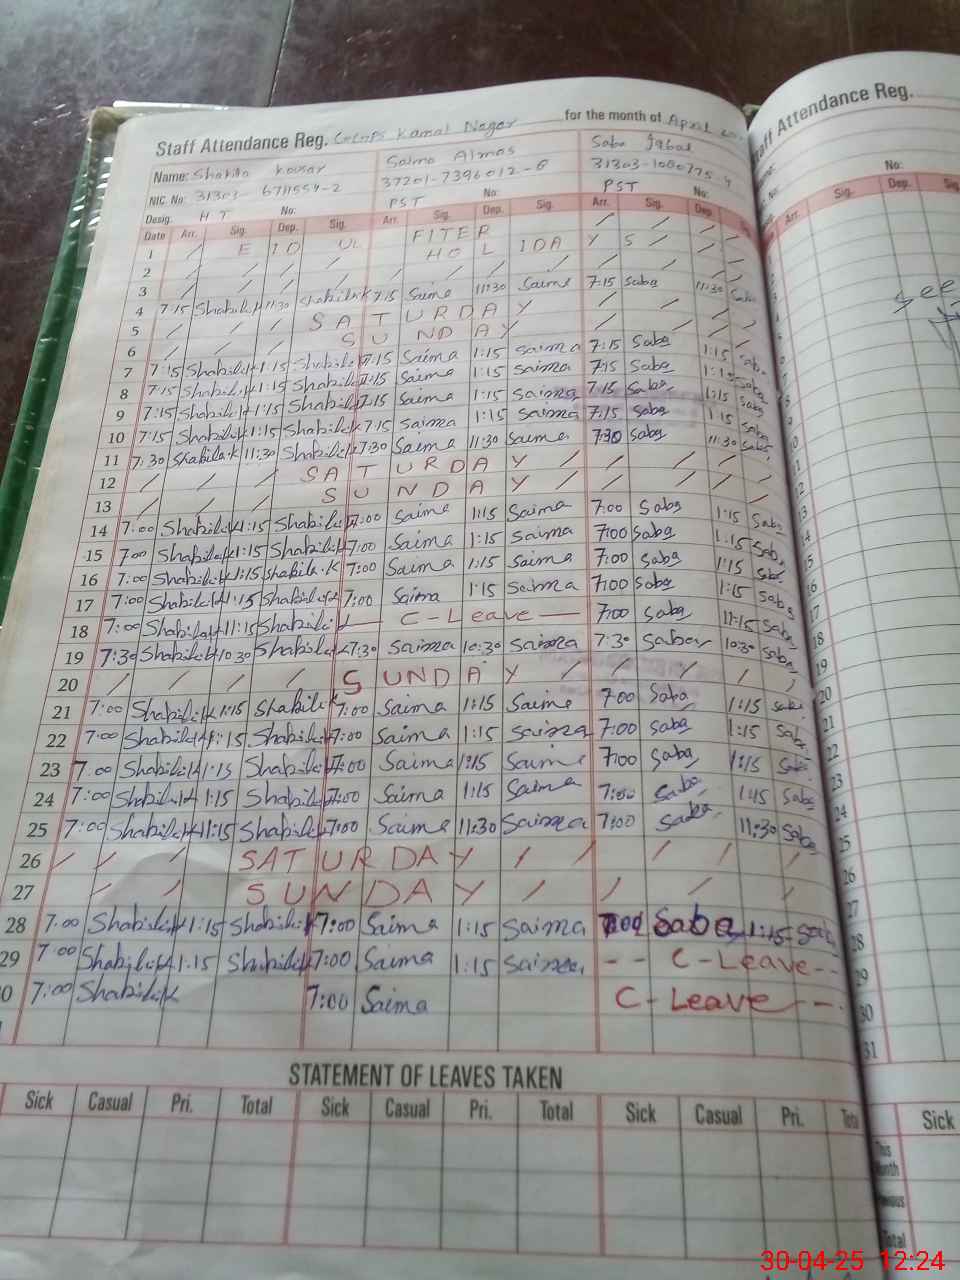 Staff Attendance Reg. GGPS Kamal Nagar for the month of April
Name: Shakila Kousar Salma Almas Saba Iqbal
NIC. No: 37201-7396012-6
Desig. HT No: PST No: PST No:
Date Arr. Sig. Dep. Sig. Arr. Sig. Dep. Sig. Arr. Sig. Dep.
1 / E ID UL FITER / / / /
2 / / / / / HOLIDAYS / / /
3 / / / / / / / / / / / /
4 7:15 Shakila.k 11:30 Shakila.k 7:15 Saima 11:30 Saima 7:15 Saba 11:30 Saba
5 / / / SATURDAY / / / /
6 / / / SUNDAY / / / /
7 7:15 Shakila.k 1:15 Shakila.k 7:15 Saima 1:15 Saima 7:15 Saba 1:15 Saba
8 7:15 Shakila.k 1:15 Shakila.k 7:15 Saima 1:15 Saima 7:15 Saba 1:15 Saba
9 7:15 Shakila.k 1:15 Shakila.k 7:15 Saima 1:15 Saima 7:15 Saba 1:15 Saba
10 7:15 Shakila.k 1:15 Shakila.k 7:15 Saima 1:15 Saima 7:15 Saba 1:15 Saba
11 7:30 Shakila.k 11:30 Shakila.k 7:30 Saima 11:30 Saima 7:30 Saba 11:30 Saba
12 / / / SATURDAY / / / / /
13 / / / SUNDAY / / / / /
14 7:00 Shakila.k 1:15 Shakila.k 7:00 Saima 1:15 Saima 7:00 Saba 1:15 Saba
15 7:00 Shakila.k 1:15 Shakila.k 7:00 Saima 1:15 Saima 7:00 Saba 1:15 Saba
16 7:00 Shakila.k 1:15 Shakila.k 7:00 Saima 1:15 Saima 7:00 Saba 1:15 Saba
17 7:00 Shakila.k 1:15 Shakila.k 7:00 Saima 1:15 Saima 7:00 Saba 1:15 Saba
18 7:00 Shakila.k 11:15 Shakila.k — C-Leave — 7:00 Saba 11:15 Saba
19 7:30 Shakila.k 10:30 Shakila.k 7:30 Saima 10:30 Saima 7:30 Saba 10:30 Saba
20 / / / / SUNDAY / / / / / /
21 7:00 Shakila.k 1:15 Shakila.k 7:00 Saima 1:15 Saima 7:00 Saba 1:15 Saba
22 7:00 Shakila.k 1:15 Shakila.k 7:00 Saima 1:15 Saima 7:00 Saba 1:15 Saba
23 7:00 Shakila.k 1:15 Shakila.k 7:00 Saima 1:15 Saima 7:00 Saba 1:15 Saba
24 7:00 Shakila.k 1:15 Shakila.k 7:00 Saima 1:15 Saima 7:00 Saba 1:15 Saba
25 7:00 Shakila.k 11:15 Shakila.k 7:00 Saima 11:30 Saima 7:00 Saba 11:30 Saba
26 / / SATURDAY / / / / /
27 / / SUNDAY / / / /
28 7:00 Shakila.k 1:15 Shakila.k 7:00 Saima 1:15 Saima 7:00 Saba 1:15 Saba
29 7:00 Shakila.k 1:15 Shakila.k 7:00 Saima 1:15 Saima -- C-Leave --
0 7:00 Shakila.k 7:00 Saima C-Leave --
STATEMENT OF LEAVES TAKEN
Sick Casual Pri. Total Sick Casual Pri. Total Sick Casual Pri. Total
Attendance Reg.
No:
Arr. Sig. Dep. Sig.
see
31
Sick
30-04-25 12:24